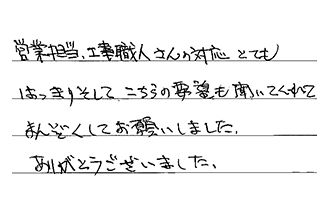 営業担当、工事職人さんの対応 とても
はっきりそして、こちらの要望も聞いてくれて
まんぞくしてお願いしました。
ありがとうございました。